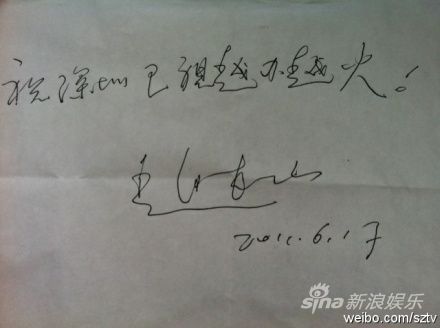 祝深圳卫视越办越火!
2011.6.17
sina 新浪娱乐
weibo.com/sztv